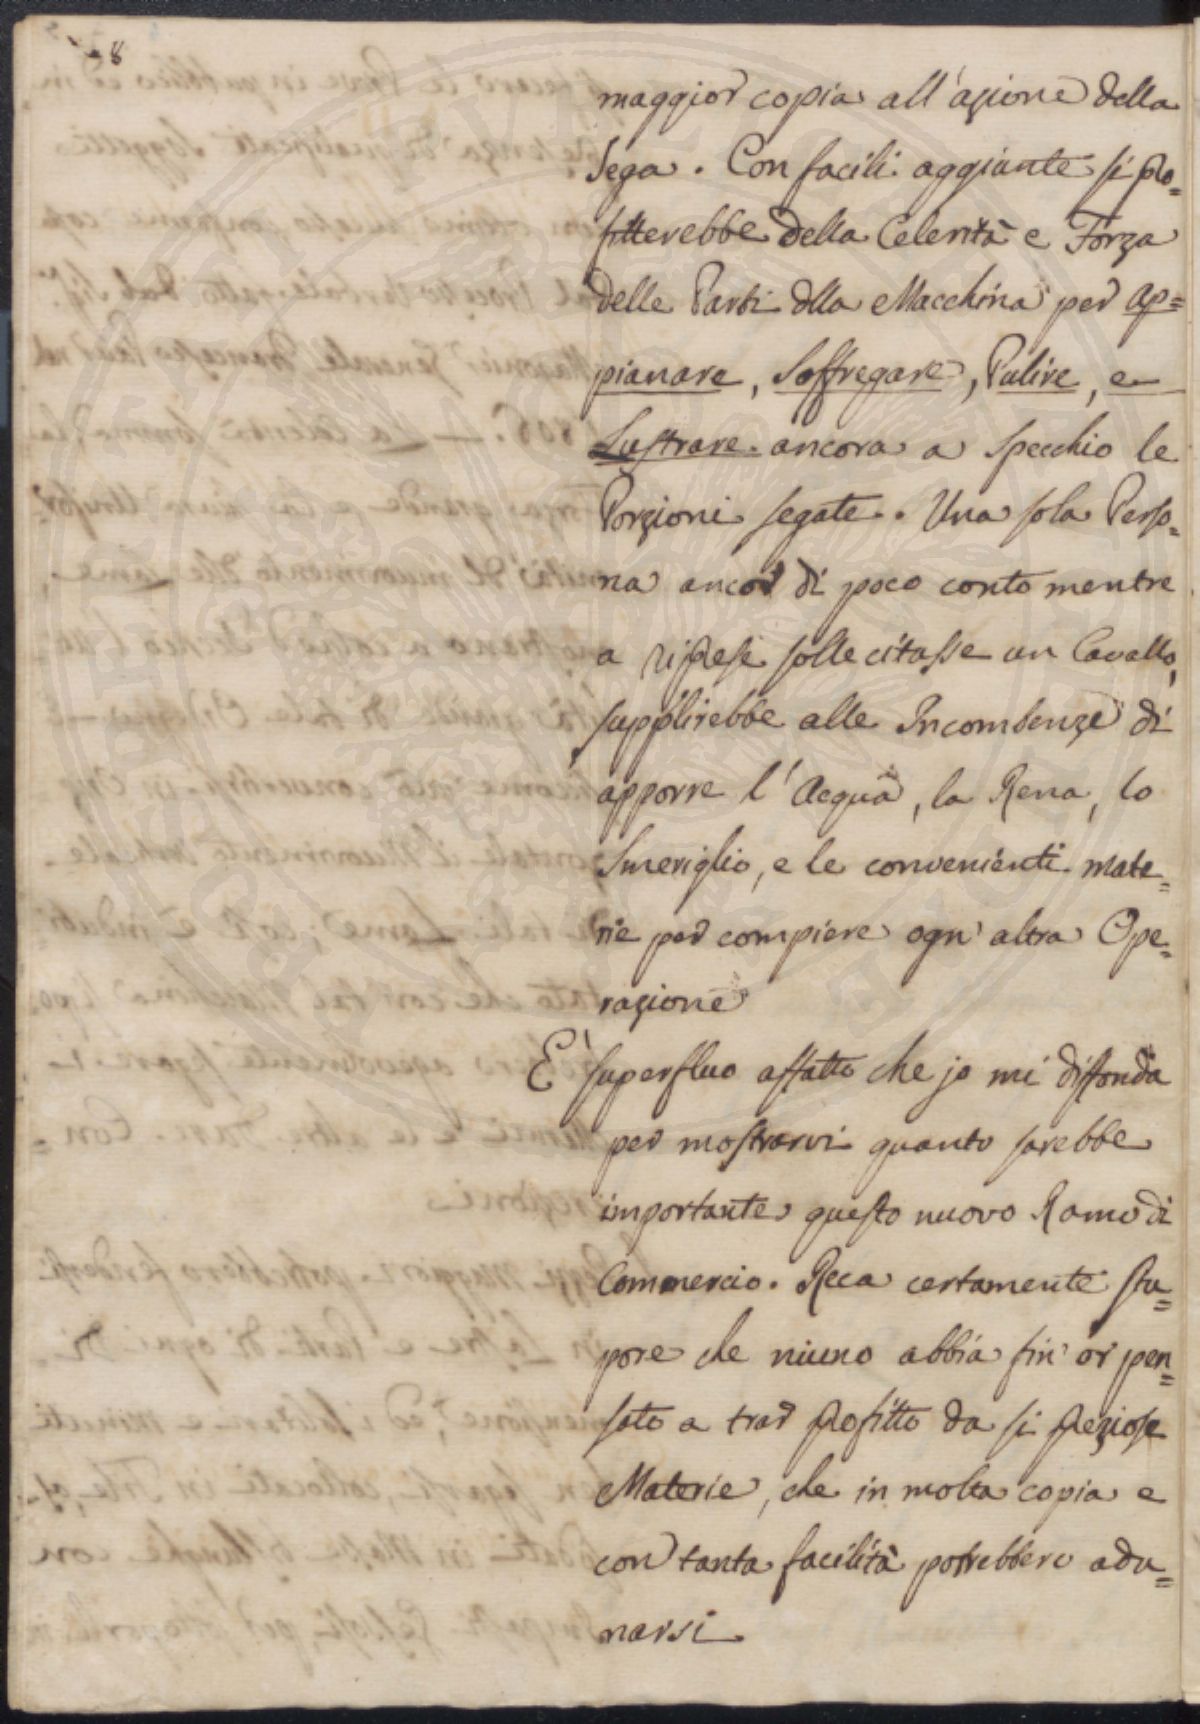 8
maggior copia all'azione della
sega. Con facili aggiunte si pro=
fitterebbe della Celerità e Forza
delle Parti dlla Macchina per ap=
pianare, soffregare, Pulire, e
Lustrare ancora a specchio le
Porzioni segate. Una sola Perso=
na ancor di poco conto mentre
a riprese sollecitasse un Cavallo,
supplirebbe alle Incombenze di
apporre l'Acqua, la Rena, lo
Smeriglio, e le convenienti mate=
rie per compiere ogn'altra Ope=
razione
E' superfluo affatto che jo mi diffonda
per mostrarvi quanto sarebbe
importante questo nuovo Ramo di
Commercio. Reca certamente stu=
pore che niuno abbia fin'or pen=
sato a trar profitto da sì preziose
Materie, che in molta copia e
con tanta facilità potrebbero adu=
narsi